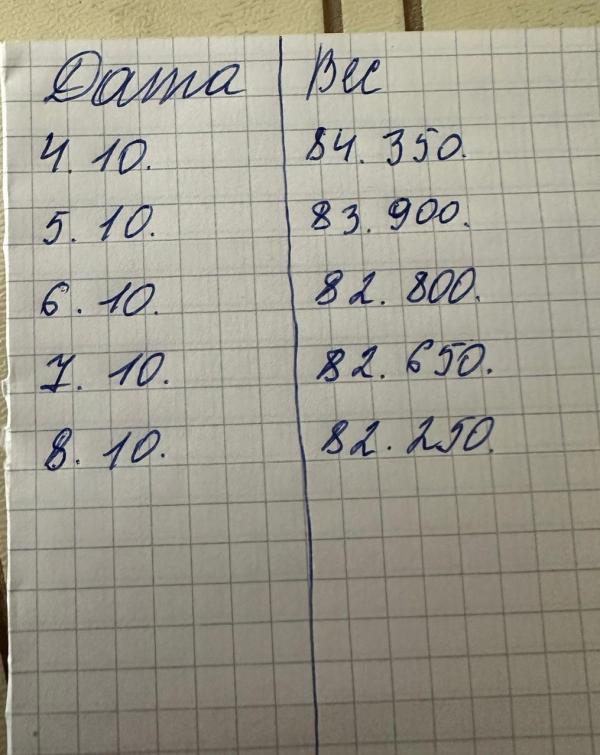 Дата Вес
4. 10. 84. 350.
5. 10. 83. 900.
6. 10. 82. 800.
7. 10. 82. 650.
8. 10. 82. 250.